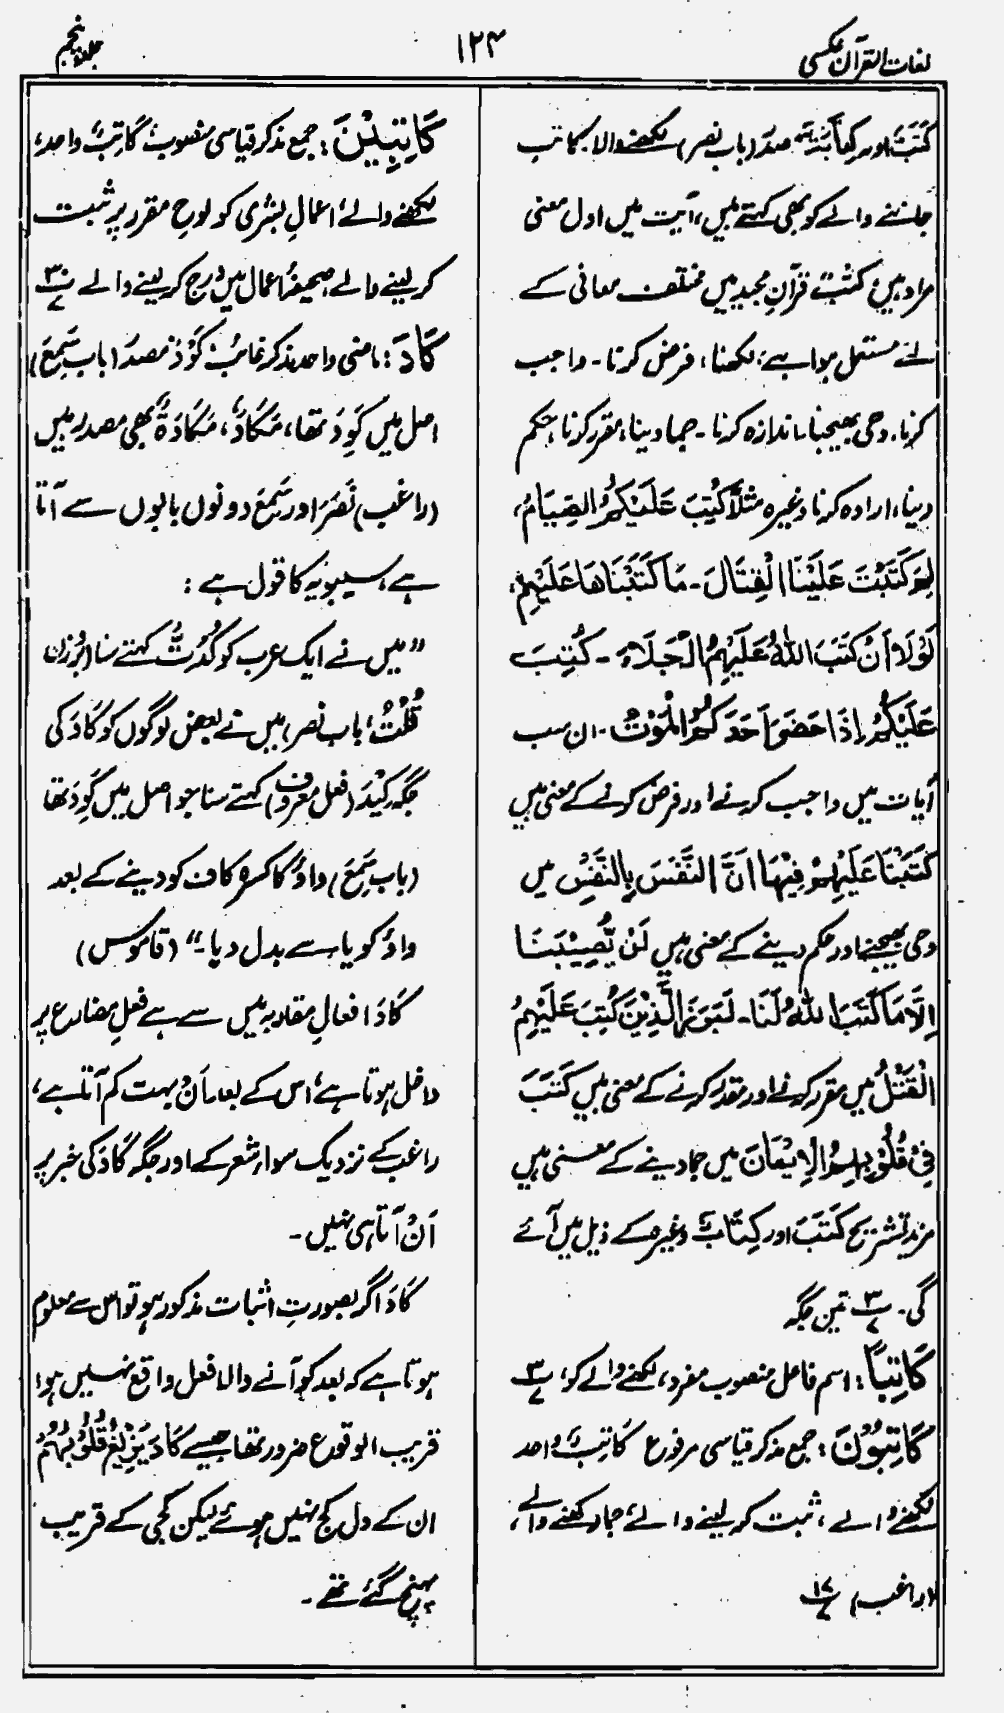 لغات القرآن عکسی
۱۲۴
جلد پنجم
کَتَبَ اور کِتَابَۃٌ مصدر (باب نصر) لکھنے والا کاتب
جاننے والے کو بھی کہتے ہیں، آیت میں اول معنی
مراد ہیں کَتَبَ قرآن مجید میں مختلف معانی کے
لئے مستعمل ہوا ہے، لکھنا، فرض کرنا۔ واجب
کرنا۔ وحی بھیجنا۔ اندازہ کرنا۔ جما دینا، مقرر کرنا، حکم
دینا، ارادہ کرنا وغیرہ مثلاً کُتِبَ عَلَیْکُمُ الصِّیَامُ،
لِمَ کَتَبْتَ عَلَیْنَا الْقِتَالَ۔ مَا کَتَبْنَاھَا عَلَیْھِمْ،
لَوْلَا اَنْ کَتَبَ اللہُ عَلَیْھِمُ الْجَلَاءَ۔ کُتِبَ
عَلَیْکُمْ اِذَا حَضَرَ اَحَدَکُمُ الْمَوْتُ۔ ان سب
آیات میں واجب کرنے اور فرض کرنے کے معنی ہیں
کَتَبْنَا عَلَیْھِمْ فِیْھَا اَنَّ النَّفْسَ بِالنَّفْسِ میں
وحی بھیجنے اور حکم دینے کے معنی ہیں لَنْ یُّصِیْبَنَا
اِلَّا مَا کَتَبَ اللہُ لَنَا۔ لَبَرَزَ الَّذِیْنَ کُتِبَ عَلَیْھِمُ
الْقَتْلُ میں مقرر کرنے اور مقدر کرنے کے معنی ہیں کَتَبَ
فِیْ قُلُوْبِھِمُ الْاِیْمَانَ میں جما دینے کے معنی ہیں
مزید تشریح کَتَبَ اور کِتَابٌ وغیرہ کے ذیل میں آئے
گی۔ ۳/۷ تین جگہ
کَاتِبًا: اسم فاعل منصوب مفرد، لکھنے والے کو، ۳/۷
کَاتِبُوْنَ: جمع مذکر قیاسی مرفوع کَاتِبٌ واحد
لکھنے والے، ثبت کر لینے والے، جما رکھنے والے،
(راغب) ۱۷/۷
کَاتِبِیْنَ: جمع مذکر قیاسی منصوب کَاتِبٌ واحد،
لکھنے والے، اعمالِ بشری کو لوحِ مقرر پر ثبت
کر لینے والے، صحیفۂ اعمال میں درج کر لینے والے ۳۰/۷
کَادَ: ماضی واحد مذکر غائب کَوْدٌ مصدر (باب سَمِعَ)
اصل میں کَوِدَ تھا، مَکَادٌ، مَکَادَۃٌ بھی مصدر ہیں
(راغب) نَصَرَ اور سَمِعَ دونوں بابوں سے آتا
ہے، سیبویہ کا قول ہے:
”میں نے ایک عرب کو کُدْتُّ کہتے سنا (بوزن
قُلْتُ، باب نصر، میں نے بعض لوگوں کو کَادَ کی
جگہ کِیْدَ (فعل معروف) کہتے سنا جو اصل میں کَوِدَ تھا
(باب سَمِعَ) واؤ کا کسرہ کاف کو دینے کے بعد
واؤ کو یا سے بدل دیا۔“ (قاموس)
کَادَ افعالِ مقاربہ میں سے ہے فعل مضارع پر
داخل ہوتا ہے، اس کے بعد اَنْ بہت کم آتا ہے،
راغب کے نزدیک سواء شعر کے اور جگہ کَادَ کی خبر پر
اَنْ آتا ہی نہیں۔
کَادَ اگر بصورتِ اثبات مذکور ہو تو اس سے معلوم
ہوتا ہے کہ بعد کو آنے والا فعل واقع نہیں ہوا
قریب الوقوع ضرور تھا جیسے کَادَ یَزِیْغُ قُلُوْبُھُمْ
ان کے دل کج نہیں ہوئے لیکن کجی کے قریب
پہنچ گئے تھے۔